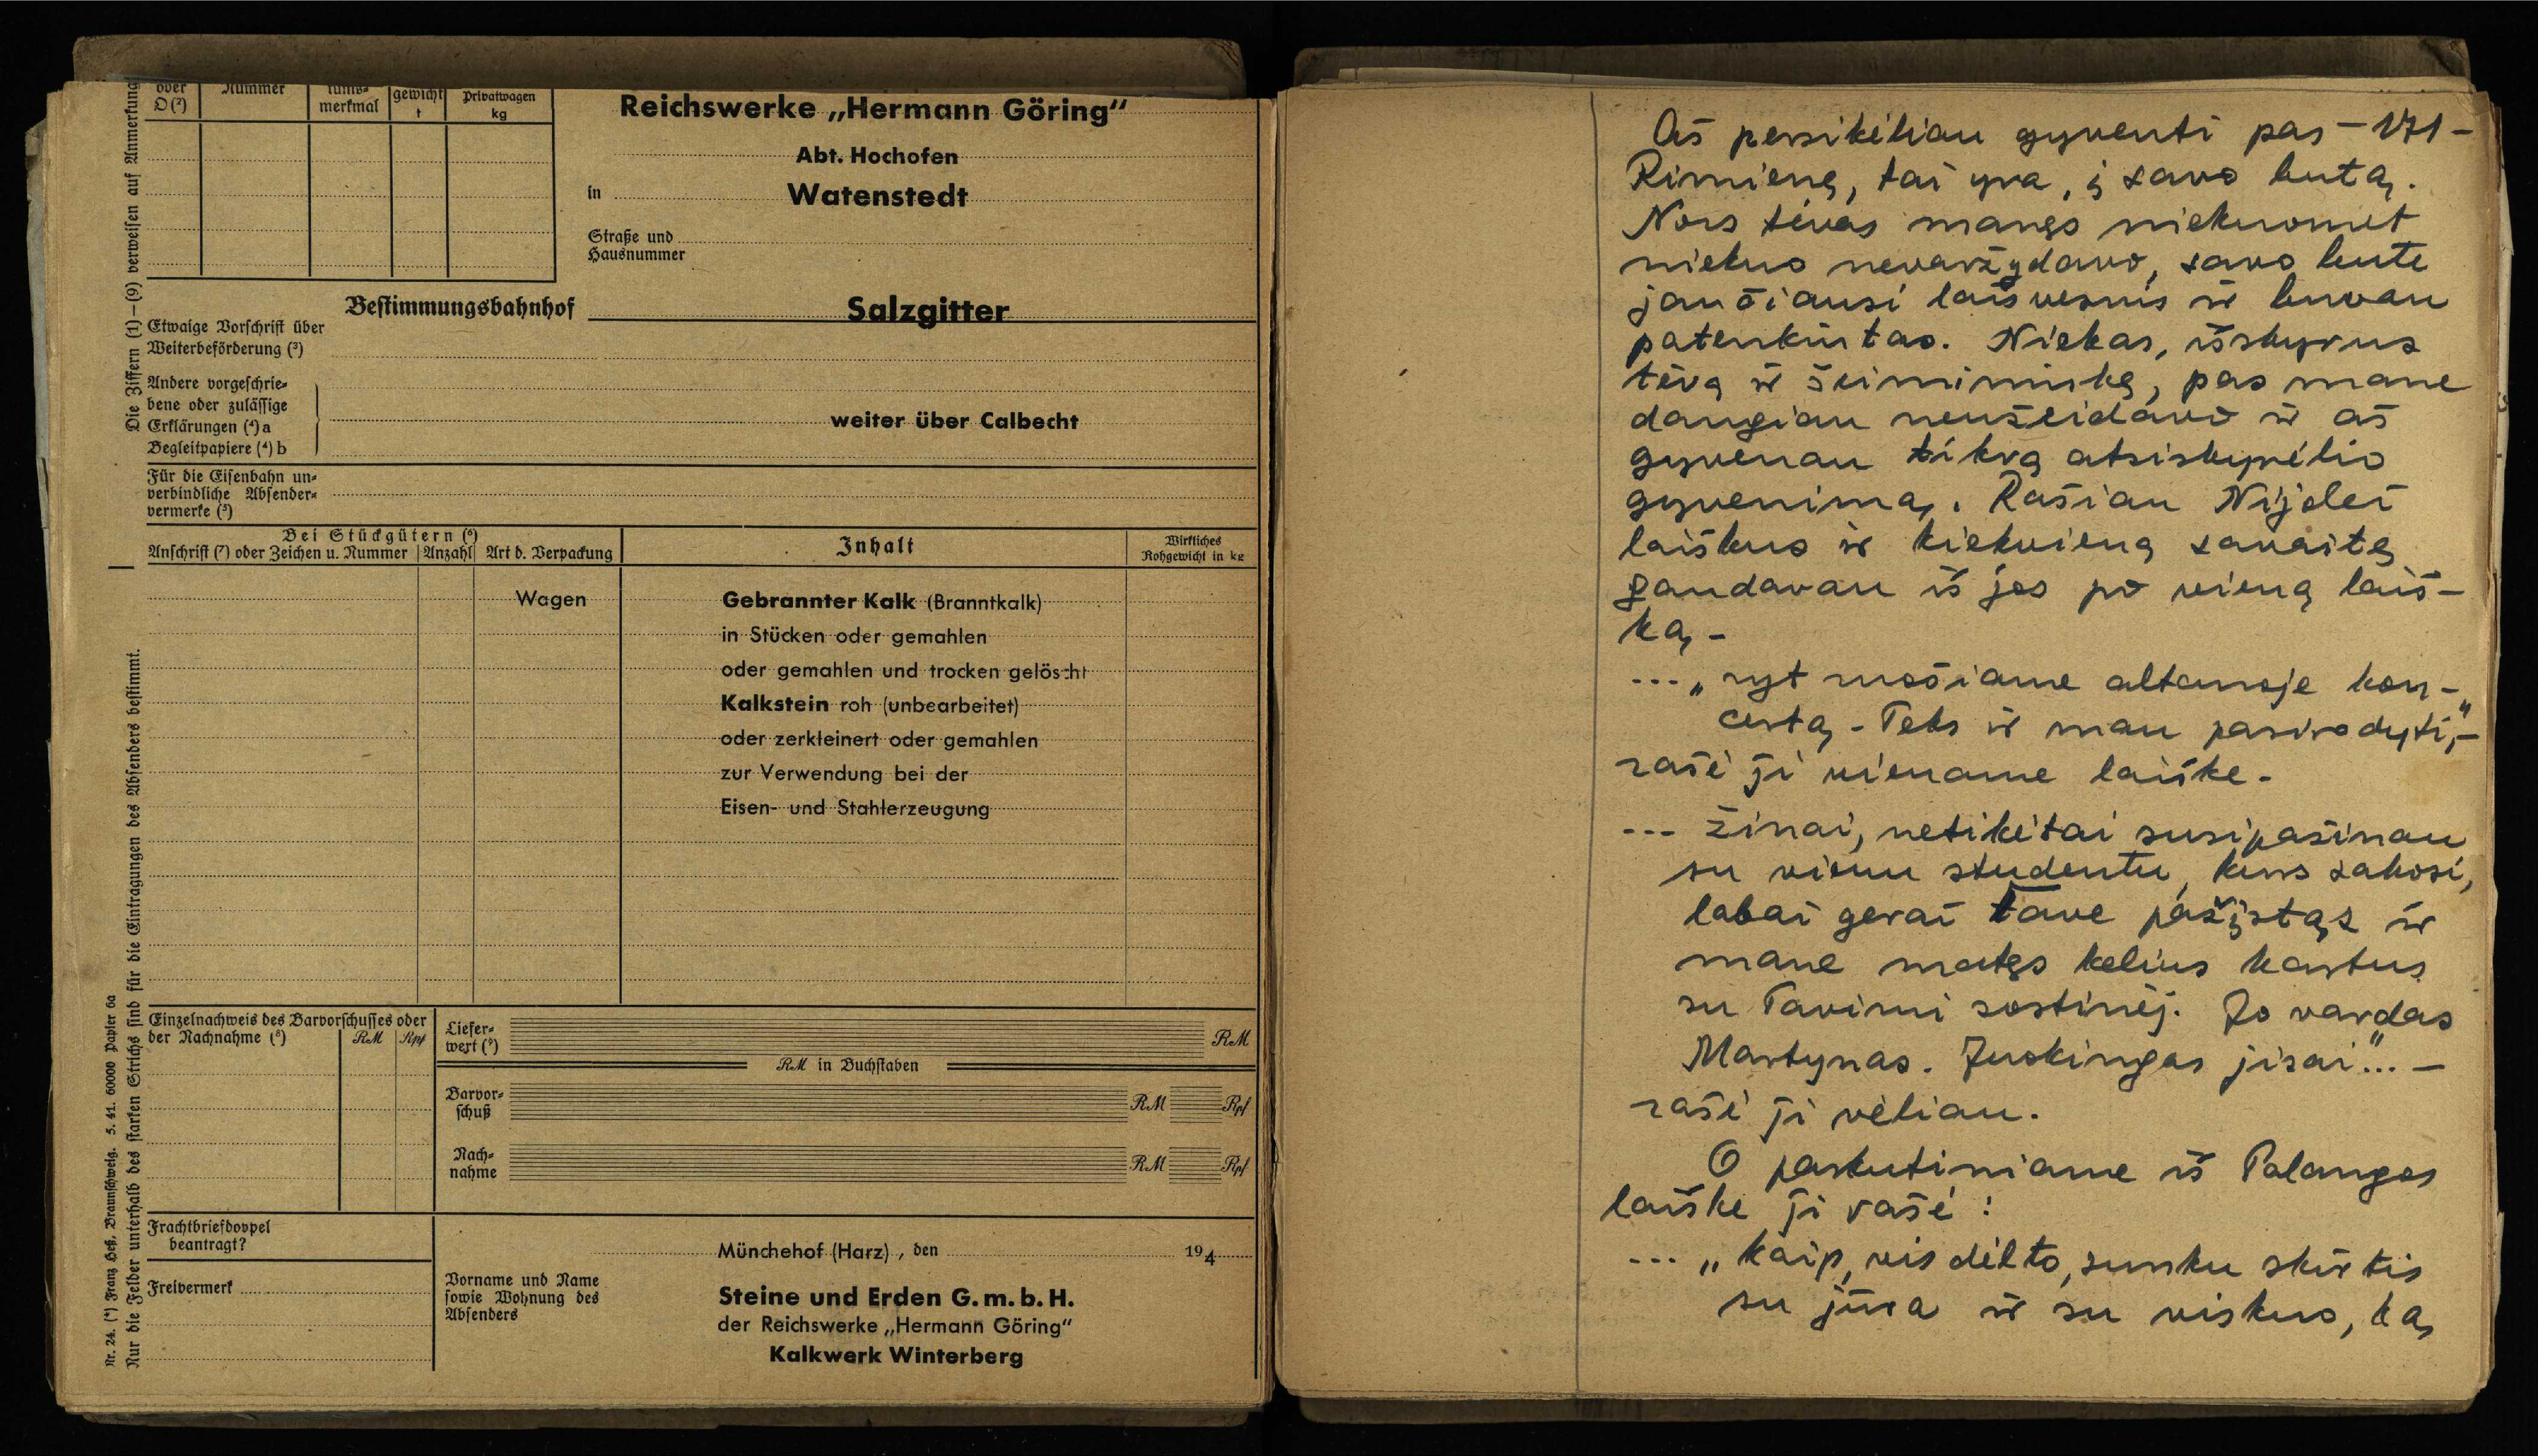 oder
D(²)
Nummer
tums-
merkmal
gewicht
t
Privatwagen
kg
Die Ziffern (1)–(9) verweisen auf Anmerkung
Reichswerke „Hermann Göring“
Abt. Hochofen
in Watenstedt
Straße und
Hausnummer
Bestimmungsbahnhof Salzgitter
Etwaige Vorschrift über
Weiterbeförderung (³)
Andere vorgeschrie-
bene oder zulässige
Erklärungen (⁴) a
Begleitpapiere (⁴) b
weiter über Calbecht
Für die Eisenbahn un-
verbindliche Absender-
vermerke (⁵)
Bei Stückgütern (⁶)
Anschrift (⁷) oder Zeichen u. Nummer
Anzahl
Art d. Verpackung
Inhalt
Wirkliches
Rohgewicht in kg
Wagen
Gebrannter Kalk (Branntkalk)
in Stücken oder gemahlen
oder gemahlen und trocken gelöscht
Kalkstein roh (unbearbeitet)
oder zerkleinert oder gemahlen
zur Verwendung bei der
Eisen- und Stahlerzeugung
Nur die Felder unterhalb des starken Strichs sind für die Eintragungen des Absenders bestimmt.
Nr. 24. (*) Franz Heß, Braunschweig. 5. 41. 60000 Papier 6a
Einzelnachweis des Barvorschusses oder
der Nachnahme (⁸)
RM
Rpf
Liefer-
wert (⁹)
RM
RM in Buchstaben
Barvor-
schuß
RM
Rpf
Nach-
nahme
RM
Rpf
Frachtbriefdoppel
beantragt?
Freivermerk
Münchehof (Harz), den 194
Vorname und Name
sowie Wohnung des
Absenders
Steine und Erden G.m.b.H.
der Reichswerke „Hermann Göring“
Kalkwerk Winterberg
Aš persikėliau gyventi pas -171-
Rimienę, tai yra, į savo butą.
Nors tėvas manęs niekuomet
niekuo nevaržydavo, savo bute
jaučiausi laisvesnis ir buvau
patenkintas. Niekas, išskyrus
tėvą ir šeimininkę, pas mane
daugiau neužeidavo ir aš
gyvenau tikrą atsiskyrėlio
gyvenimą. Rašiau Nijolei
laiškus ir kiekvieną savaitę
gaudavau iš jos po vieną laiš-
ką -
... „ryt ruošiame altanoje kon-
certą - Teks ir man pasirodyti“, -
rašė ji viename laiške.
... žinai, netikėtai susipažinau
su vienu studentu, kurs sakosi,
labai gerai Tave pažįstąs ir
mane matęs kelius kartus
su Tavimi sostinėj. Jo vardas
Martynas. Juokingas jisai“... -
rašė ji vėliau.
O paskutiniame iš Palangos
laiške ji rašė:
... „kaip, vis dėlto, sunku skirtis
su jūra ir su viskuo, ką